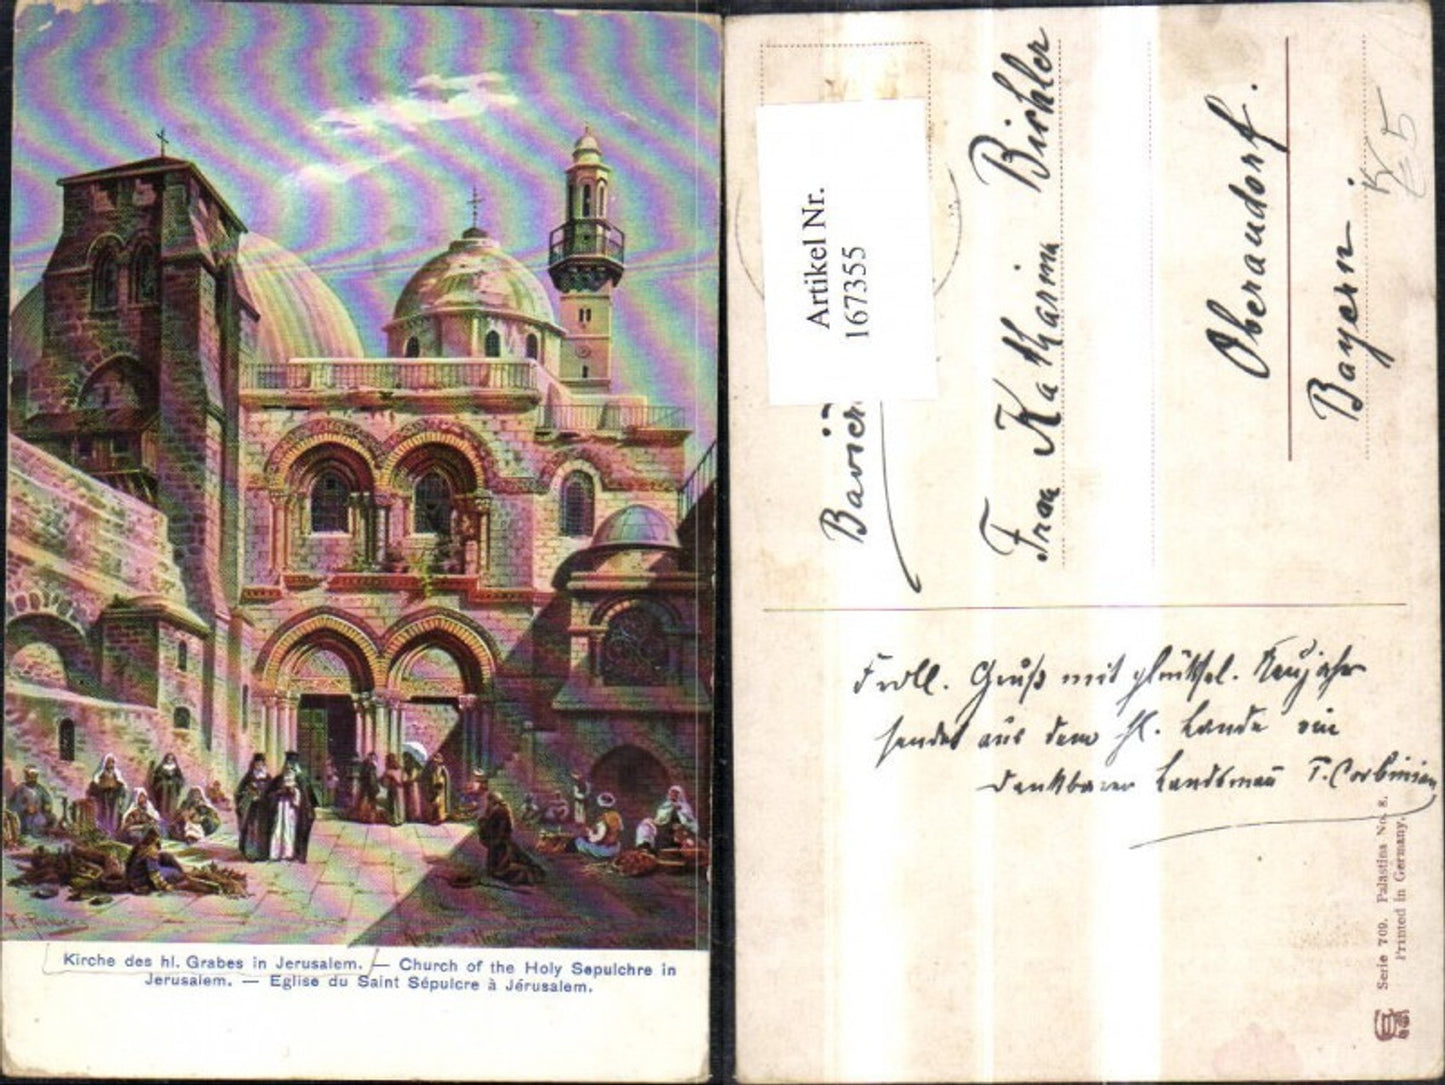 Kirche des hl. Grabes in Jerusalem. — Church of the Holy Sepulchre in
Jerusalem. — Eglise du Saint Sépulcre à Jérusalem.
Artikel Nr.
167355
Frau Katharina Bichler
Oberaudorf.
Bayern
K
5
Frdll. Gruß mit glückl. Neujahr
sendet aus dem hl. Lande ein
dankbarer Landsmann P. Corbinian
Serie 709. Palästina No. 8.
Printed in Germany.